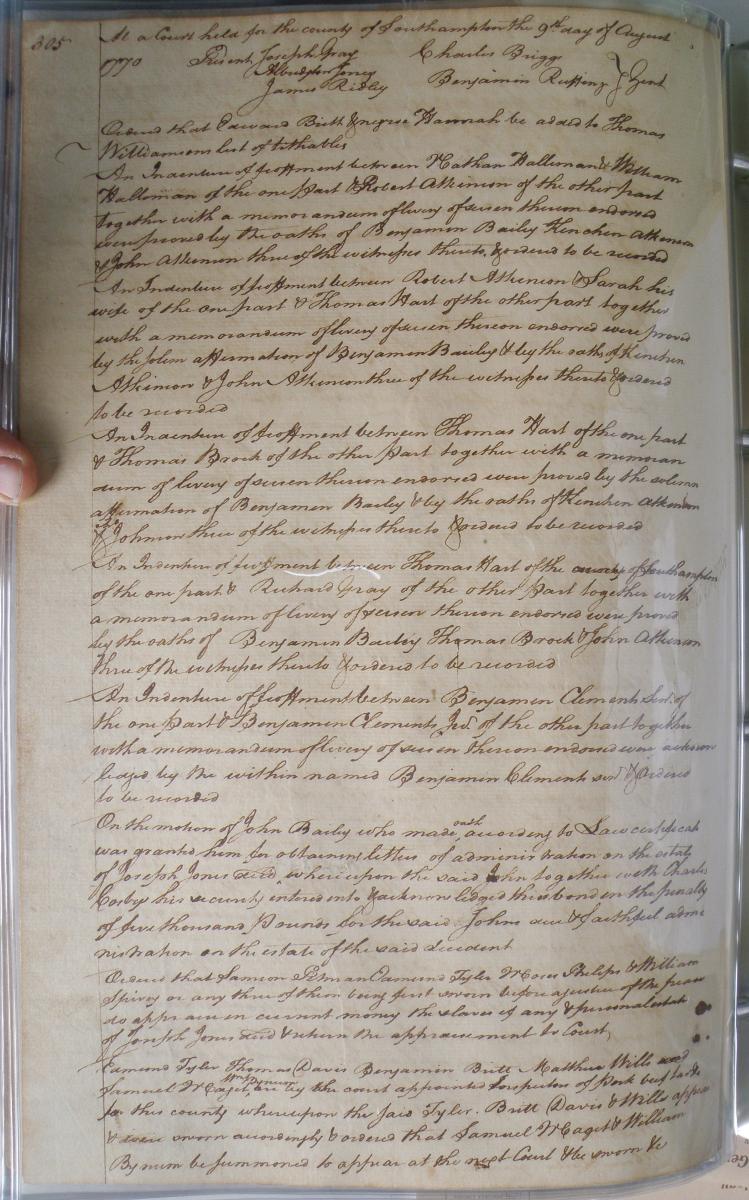 305
At a Court held for the county of Southampton the 9th day of August
1770 Present Joseph Gray Charles Briggs
Albridgton Jones Benjamin Ruffing } Gent
James Ridley
Ordered that Edward Birth & negroe Hannah be added to Thomas
Williamsons list of tithables
An Indenture of feoffment between Nathan Halleman & William
Halloman of the one part & Robert Atkinson of the other part
together with a memorandum of livery of seisen thereon endorsed
were proved by the oaths of Benjamin Bailey Kenchen Atkinson
& John Atkinson three of the witnesses thereto, & ordered to be recorded
An Indenture of feoffment between Robert Atkinson & Sarah his
wife of the one part & Thomas Hart of the other part together
with a memorandum of livery of seisen thereon endorsed were proved
by the solem affermation of Benjamin Bailey & by the oaths of Kenchen
Atkinson & John Atkinson three of the witnesses thereto & ordered
to be recorded
An Indenture of feoffment between Thomas Hart of the one part
& Thomas Brock of the other part together with a memoran
dum of livery of seisen thereon endorsed were proved by the solemn
affermation of Benjamin Bailey & by the oaths of Kenchen Atkinson
& Johnson three of the witnesses thereto & ordered to be recorded
An Indenture of feoffment between Thomas Hart of the county of Southampton
of the one part & Richard Gray of the other part together with
a memorandum of livery of seisen thereon endorsed were proved
by the oaths of Benjamin Bailey Thomas Brock & John Atkinson
three of the witnesses thereto & ordered to be recorded
An Indenture of feoffment between Benjamin Clements Senr. of
the one part & Benjamin Clements Jr. of the other part together
with a memorandum of livery of seisen thereon endorsed were acknow
ledged by the within named Benjamin Clements senr & ordered
to be recorded
On the motion of John Bailey who made oath according to Law certificate
was granted him for obtaining letters of administration on the estate
of Joseph Jones decd. whereupon the said John together with Charles
Cosby his security entered into & acknowledged their bond in the penalty
of five thousand pounds for the said Johns due & faithfull admi
nistration on the estate of the said decedent
Ordered that Samson Pitman Edmund Tyler Moses Phelips & William
Spivey or any three of them being first sworn before a justice of the peace
do appraise in current money the slaves if any & personal estate
of Joseph Jones decd & return the appraisement to Court
Edmund Tyler Thomas Davis Benjamin Britt Matthew Wills and
Samuel Maget, Wm Bynum are by the court appointed Inspectors of Pork beef tar &c
for this county whereupon the said Tyler. Britt Davis & Wills appear
& were sworn accordingly & ordered that Samuel Maget & William
Bynum be summoned to appear at the next Court & be sworn &c